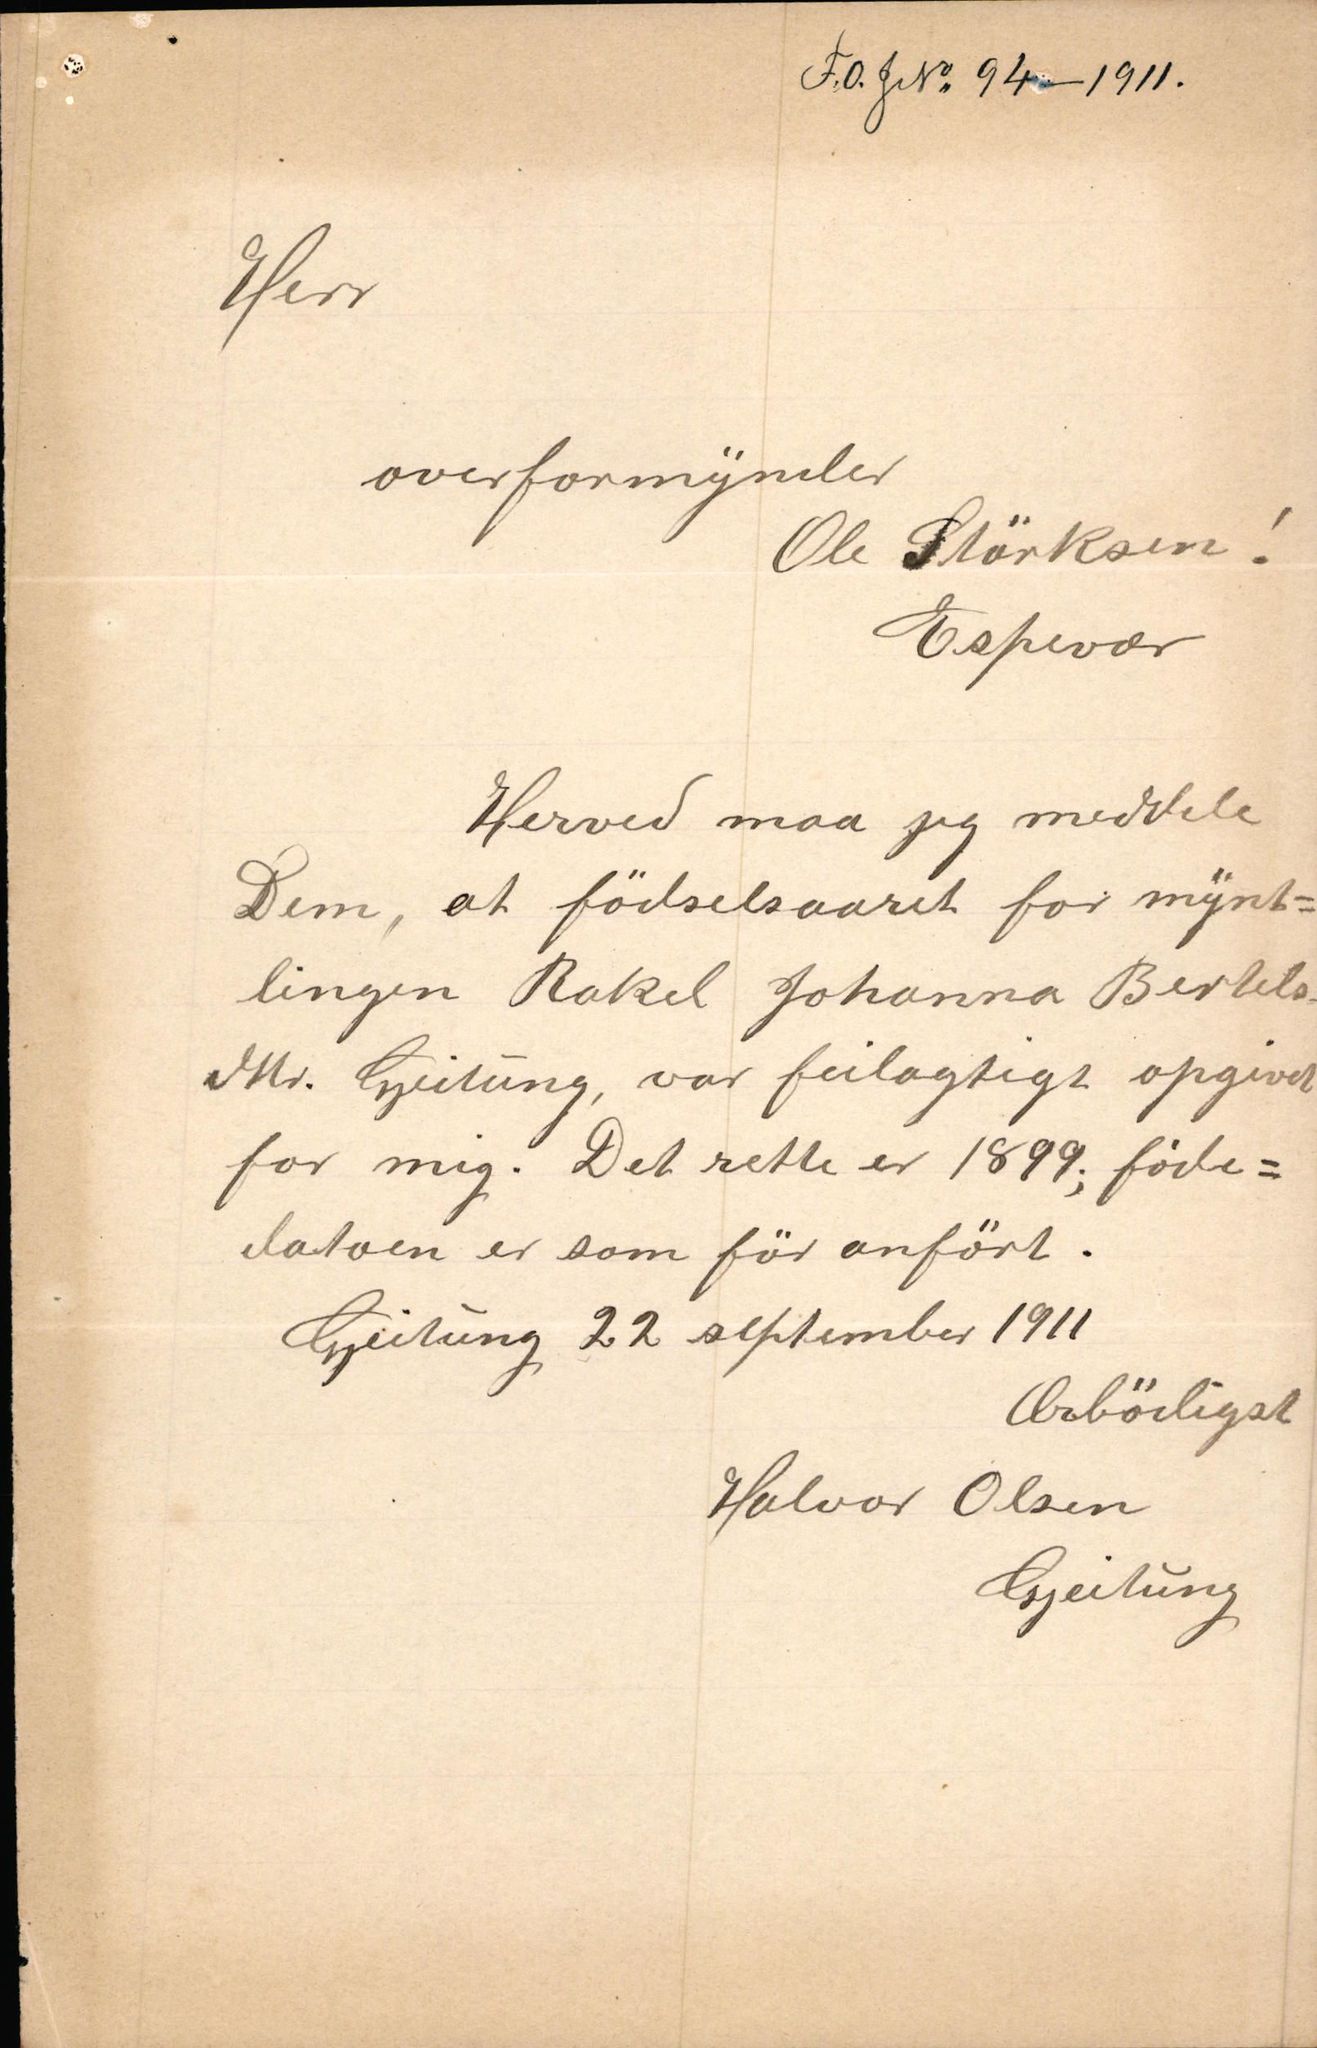 F.O. J№ 94–1911.
Herr
overformÿnder
Ole Störksen!
Espevær
Herved maa jeg meddele
Dem, at födselsaaret for mÿnt=
lingen Rakel Johanna Bertels-
dtr. Gjeitung, var feilagtigt opgivet
for mig. Det rette er 1899; föde=
datoen er som för anfört.
Gjeitung 22 september 1911
Ærbödigst
Halvor Olsen
Gjeitung